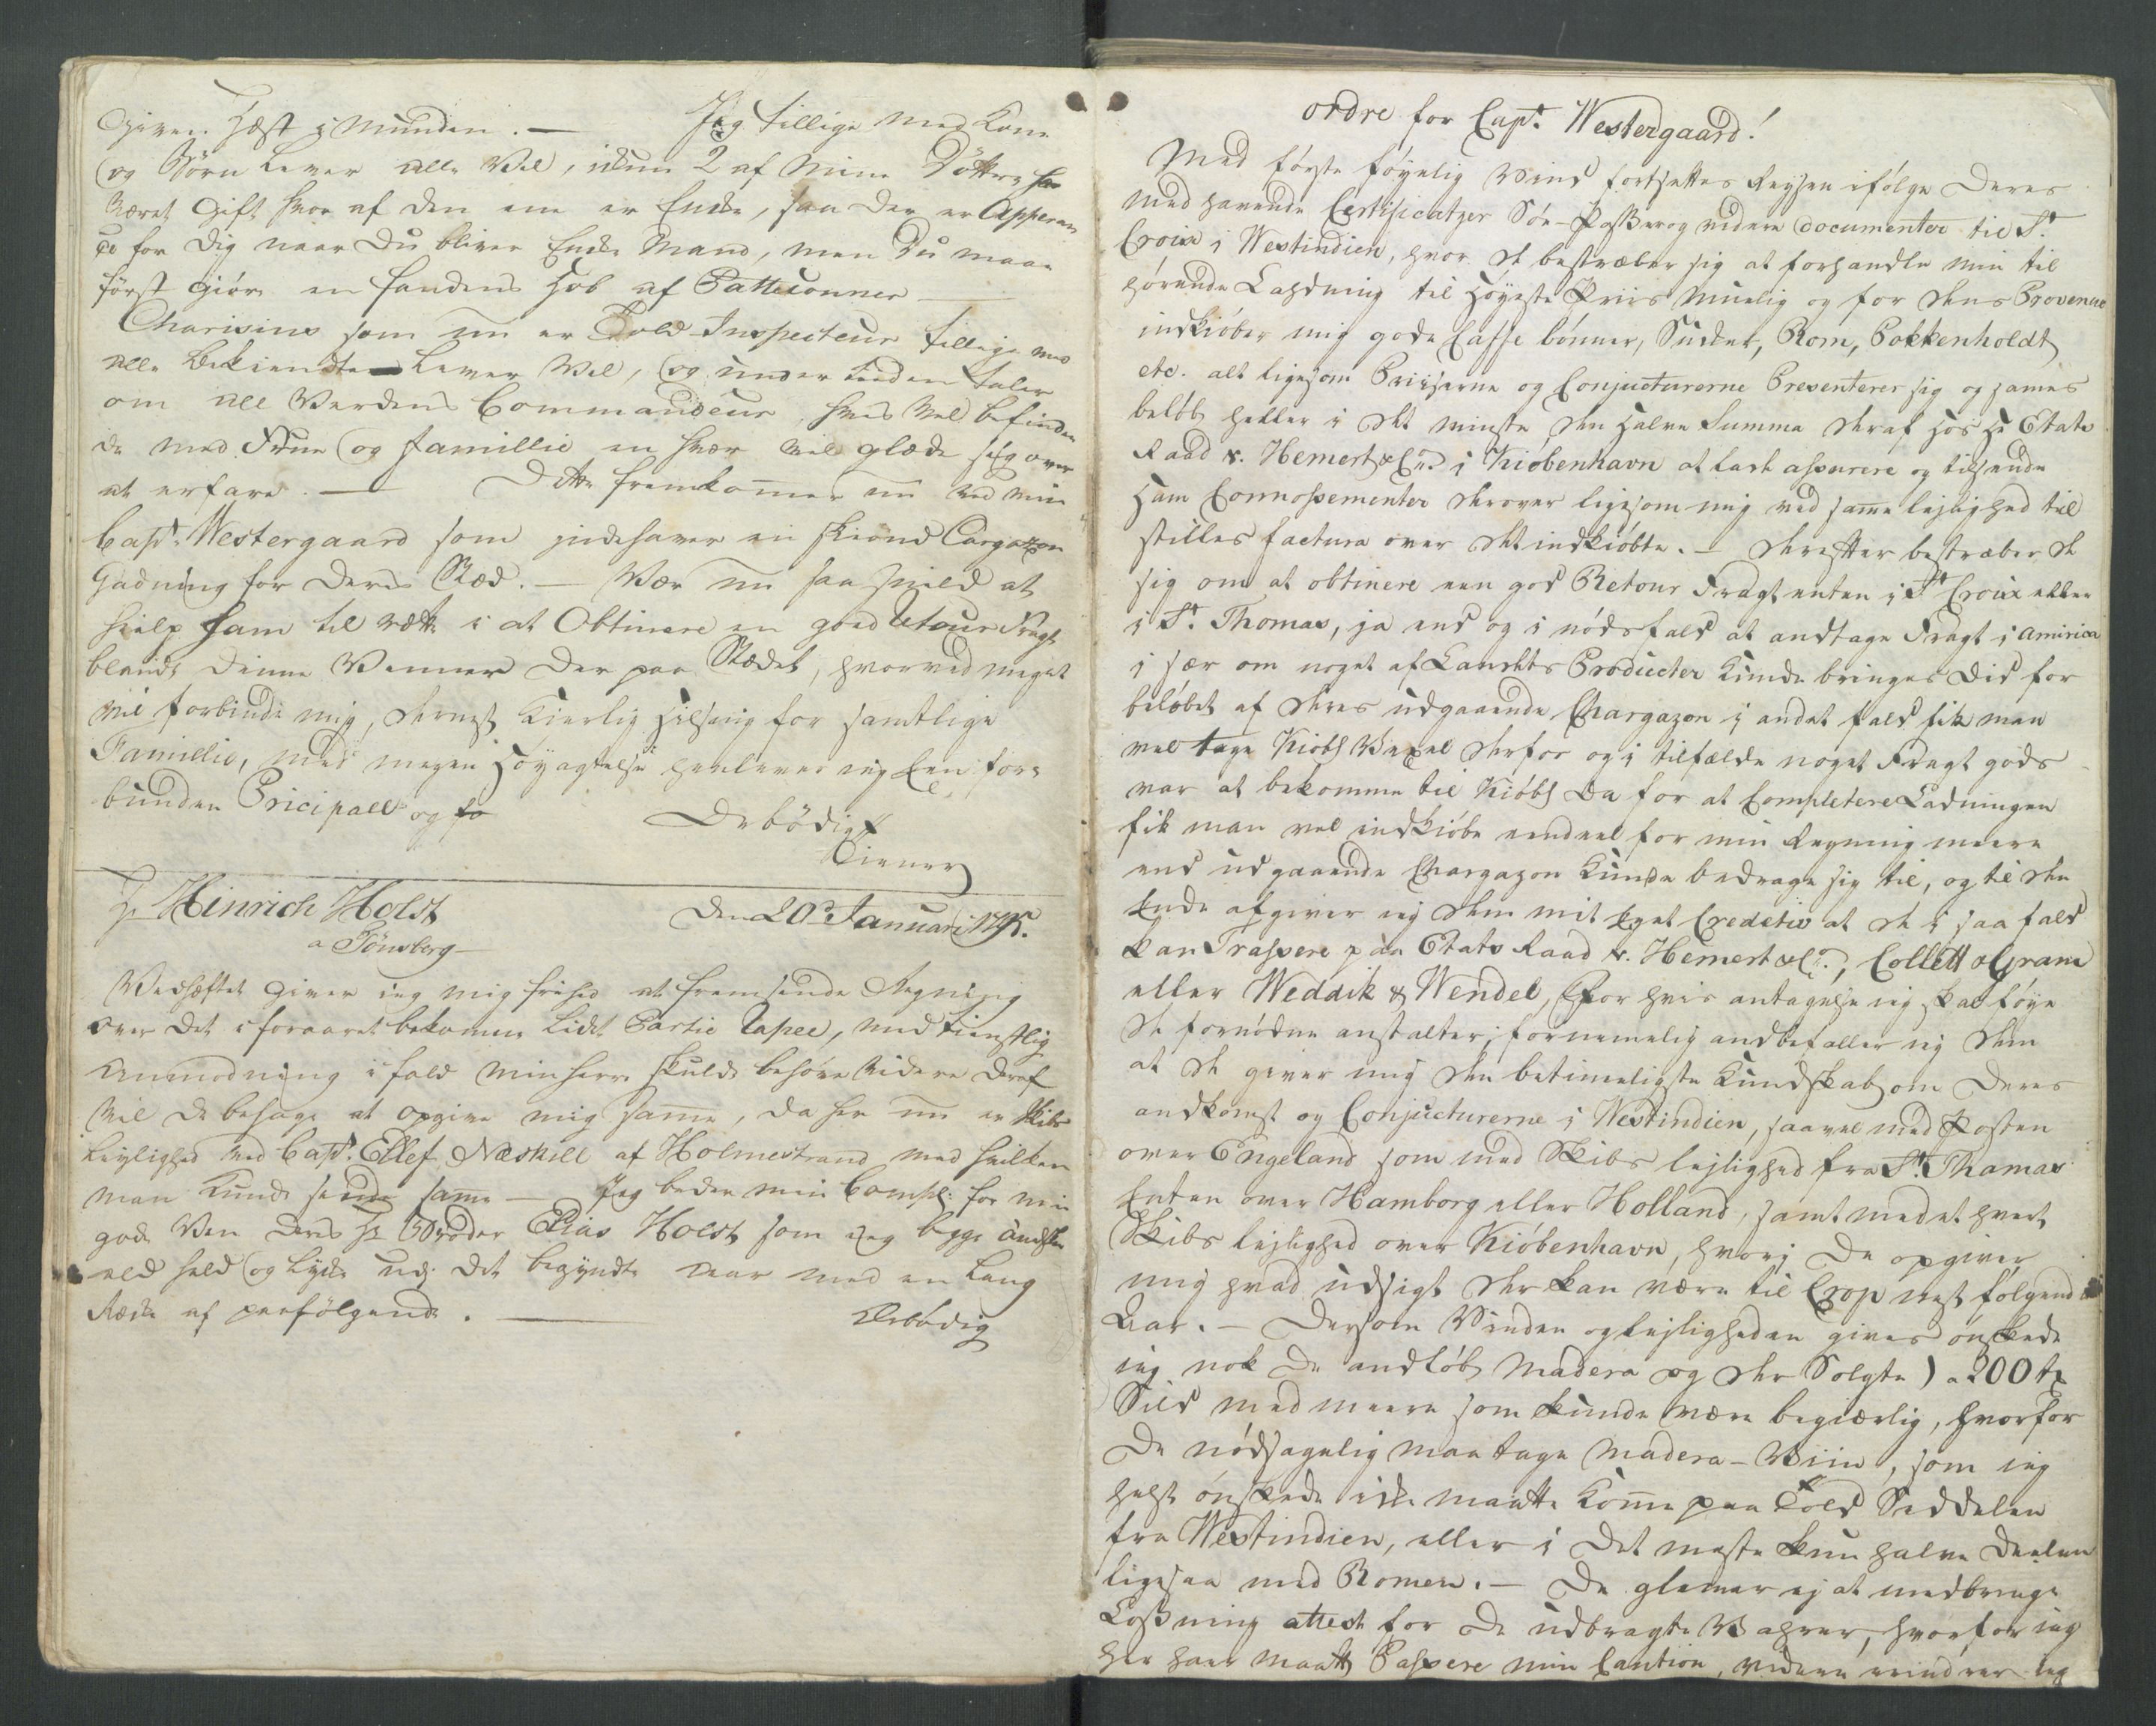 Given Hest i Munden. — Jeg tillige med Kone
og Börn lever alle Vel, ickun 2 af Mine Döttre har
Været Gift hvor af den ene er Encke, saa der er Apperen
ce for dig naar Du bliver Encke Mand, men Du maae
först giöre en handens Hob af Patteconner —
Charisius som nu er Told-Inspecteur tillige med
alle bekiendte lever Vel, og under tiden taler
om All Verdens Commandeur, hvis Vel befinden
de med Frue og Famillie en hver vil glæde sig over
at erfare. — Dette fremkommer nu ved min
Capt. Westergaard som indehaver en skiönd Cargazon
Ladning for Deres Stæd. — Vær nu saa snild at
hielp ham til rætte i at Obtinere en goed Retour Fragt
blandt dinne Venner der paa Stædet, hvorved meget
vil forbinde mig, dernæst kierlig hilsning for samtlige
Famillie, med megen Höyagtelse henlever ieg Een for-
bunden Pricipall og fo
Ærbödigst
Tienner
Hr. Hinrich Holst Den 20de Januari 1795.
a Tönsberg —
Vedhæftet giver ieg mig frihed at fremsende Regning
over det i foraaret bekomne lidet Partie Papee, med tienstlig
Anmodning i fald min herre skulde behöve videre deraf
vil de behage at opgive mig samme, da her nu er Skibs
Leylighed med Capt. Ellef Næskill af Holmestrand med hvilken
man kunde sende samme — Jeg beder min Compl: for min
gode Ven deres Hr Broder Elias Holst som ieg begge Önsker
ald held og lycke udj det begyndte Aar med en lang
Række af paafölgende. — Ærbödig
ordre for Capt. Westergaard!
Med förste föyelig Vind fortsettes Reysen ifölge Deres
med havende Certificatzer Söe-Passer og videre documenter til St.
Croix i Westindien, hvor De bestræber sig at forhandle min til
hörende Lahdning til Höyeste Priis muelig og for dens Provenue
indkiöber mig gode Caffe bönner, Sucker, Rom, Pokkenholdt
etc. alt ligesom Priiserne og Conjucturerne Presenterer sig og hames
belöb heller i det minste den halve Summa deraf hos Hr Etats
Raad v. Hemert & Co. i Kiöbenhavn at lade assurere og tilsende
ham Connossementer derover ligesom mig ved samme lejlighed til
stilles factura over det indkiöbte. — Derefter bestræber De
sig om at obtinere een god Retour Fragt enten i St Croix eller
i St. Thomas, ja end og i nödsfald at andtage Fragt i America
i sær om noget af Landets Producter kunde bringes did for
belöbet af deres udgaaende Chargazon i andet fald fik man
vel tage Kiöbh Vexel derfor og i tilfælde noget Fragt gods
var at bekomme til Kiöbh da for at Completere Ladningen
fik man vel indkiöbe eendeel for min Regning meere
end udgaaende Chargazon kunde bedrage sig til, og til den
Ende afgiver ieg dem mit Eget Creditiv at De i saa fald
kan Trassere paa Etats Raad v. Hemert & Co., Collett & Gram
eller Weddik & Wendel, for hvis antagelse ieg skal föye
De fornödne anstalter; fornemelig andbefaller ieg Dem
at De giver mig den betimeligste Kundskab om Deres
andkomst og Conjucturerne i Westindien, saavel med Posten
over Engeland som med Skibs lejlighed fra St. Thamas
Enten over Hamborg eller Holland, samt med et hvert
Skibs lejlighed over Kiöbenhavn, hvorj De opgiver
mig hvad udsigt der kan være til Crop nest fölgende
Aar. — Dersom Vinden og lejligheden gives önskede
ieg nok De andlöb Madera og der Solgte ) a 200 tr
Sild med meere som kunde være begiærlig, hvorfor
De nödsagelig maa tage Madera-Viin, som ieg
helst önskede icke maatte komme paa Told Seddelen
fra Westindien, eller i det meste kun halve deelen
ligesaa med Romen. — De glemer ej at medbringe
Losning attest for de udbragte Vahrer, hvorfor ieg
her haver maatt Passere min Caution, videre erindrer ieg